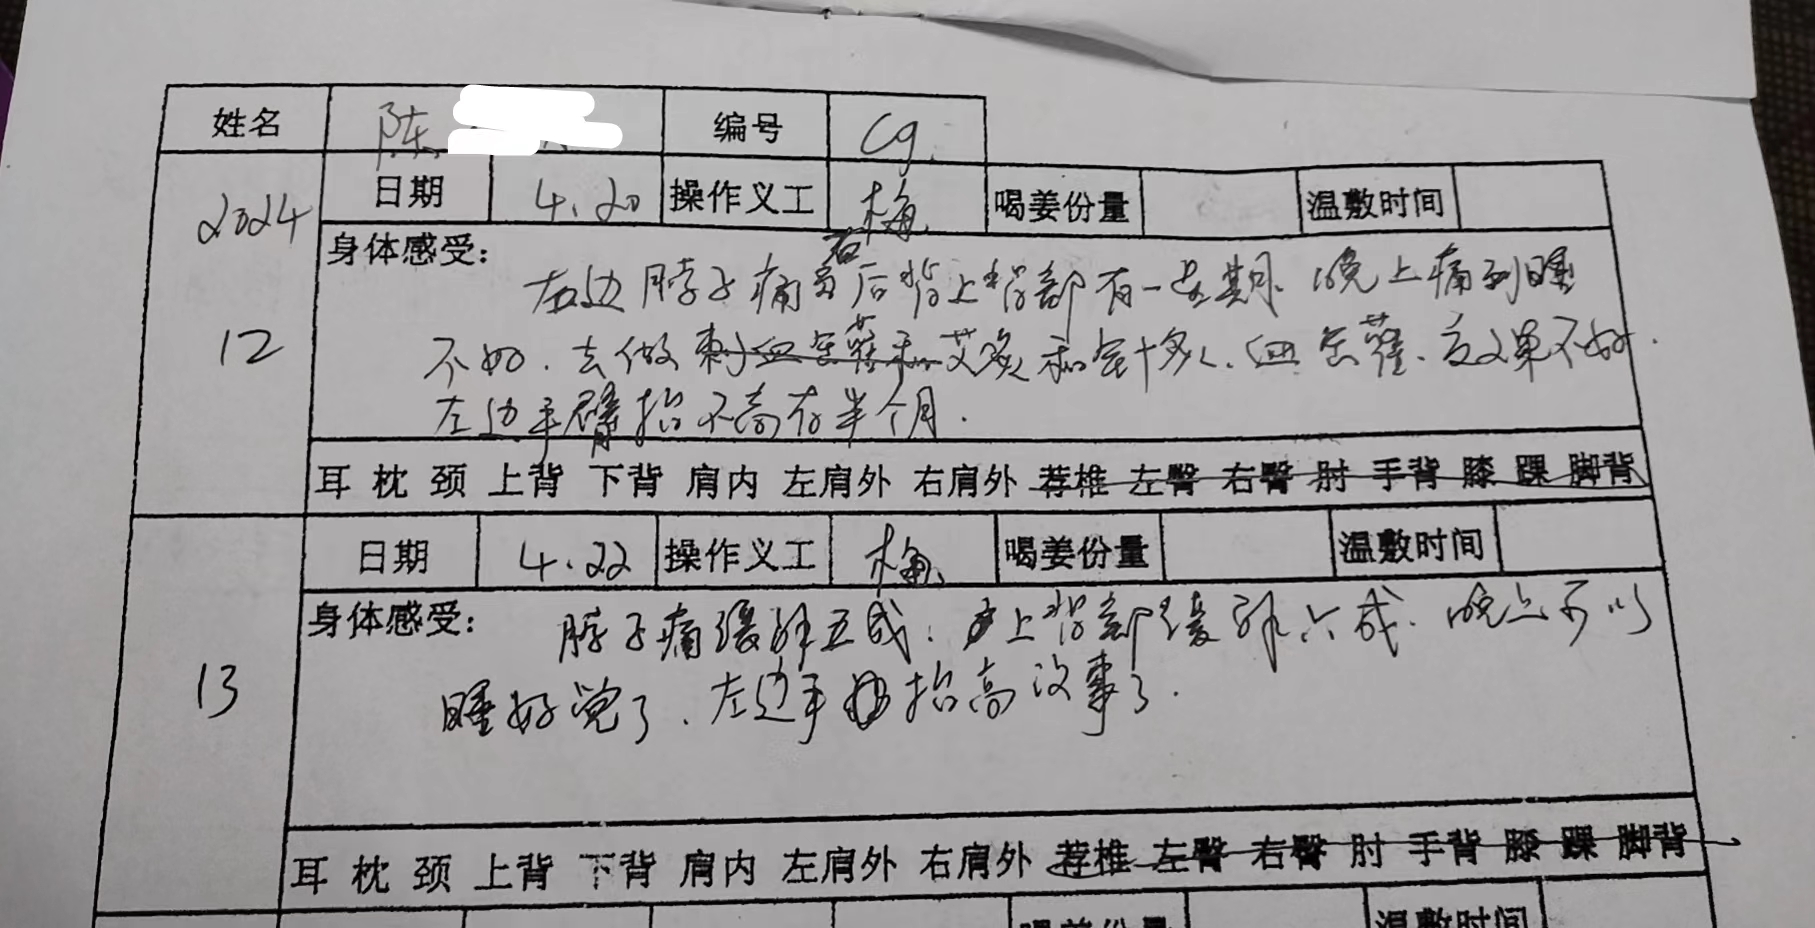 姓名 陈 编号 C9.
2024 日期 4.20 操作义工 梅 喝姜份量 温敷时间
12
身体感受:
右边脖子痛 右后背上背部有一星期. 晚上痛到睡
不好. 去做刺血缶罐和艾灸和针灸. 血缶罐. 效果不好.
左边手臂抬不高有半个月.
耳 枕 颈 上背 下背 肩内 左肩外 右肩外 荐椎 左臀 右臀 肘 手背 膝 踝 脚背
日期 4.22 操作义工 梅 喝姜份量 温敷时间
13
身体感受: 脖子痛缓解五成. 上背部缓解六成. 晚上可以
睡好觉了. 左边手抬高没事了.
耳 枕 颈 上背 下背 肩内 左肩外 右肩外 荐椎 左臀 右臀 肘 手背 膝 踝 脚背
喝姜份量 温敷时间